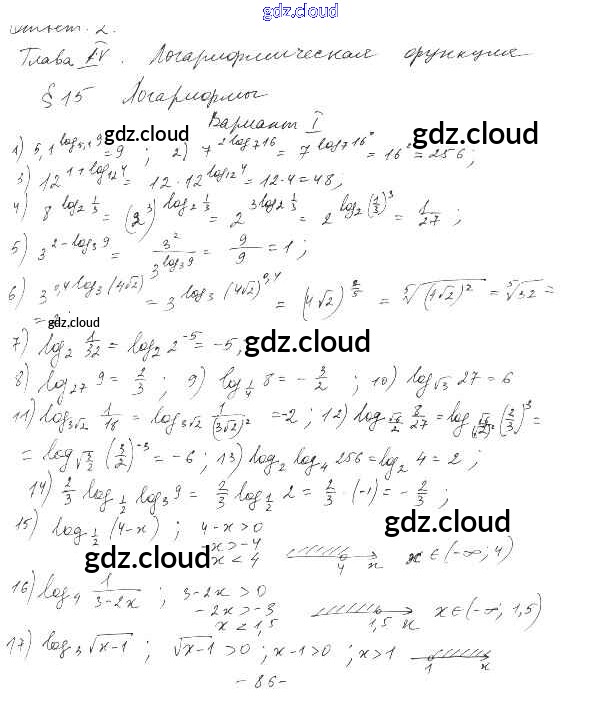 gdz.cloud
Глава IV. Логарифмическая функция
§ 15 Логарифмы
Вариант I
gdz.cloud gdz.cloud
1) 5,1^{log_{5,1} 9} = 9 ; 2) 7^{2 log_7 16} = 7^{log_7 16²} = 16² = 256 ;
3) 12^{1+log_{12} 4} = 12 · 12^{log_{12} 4} = 12 · 4 = 48 ;
gdz.cloud gdz.cloud
4) 8^{log_2 1/3} = (2³)^{log_2 1/3} = 2^{3 log_2 1/3} = 2^{log_2 (1/3)³} = 1/27 ;
5) 3^{2 - log_3 9} = 3²/3^{log_3 9} = 9/9 = 1 ;
6) 3^{0,4 log_3 (4√2)} = 3^{log_3 (4√2)^{0,4}} = (4√2)^{2/5} = ⁵√((4√2)²) = ⁵√32 =
gdz.cloud
7) log_2 1/32 = log_2 2^{-5} = -5,
gdz.cloud gdz.cloud
8) log_{27} 9 = 2/3 ; 9) log_{1/4} 8 = - 3/2 ; 10) log_{√3} 27 = 6
11) log_{3√2} 1/18 = log_{3√2} 1/(3√2)² = -2 ; 12) log_{√6/2} 8/27 = log (2/3)³ =
= log_{√3/2} (3/2)^{-3} = -6 ; 13) log_2 log_4 256 = log_2 4 = 2 ;
14) 2/3 log_{1/2} log_3 9 = 2/3 log_{1/2} 2 = 2/3 · (-1) = - 2/3 ;
15) log_{1/2} (4-x) ; 4-x > 0
gdz.cloud
x > -4
gdz.cloud
x < 4 4 x x ∈ (-∞; 4)
16) log_4 1/(3-2x) ; 3-2x > 0
-2x > -3
x < 1,5 1,5 x x ∈ (-∞; 1,5)
17) log_3 √(x-1) ; √(x-1) > 0 ; x-1 > 0 ; x > 1 1 x
- 86 -